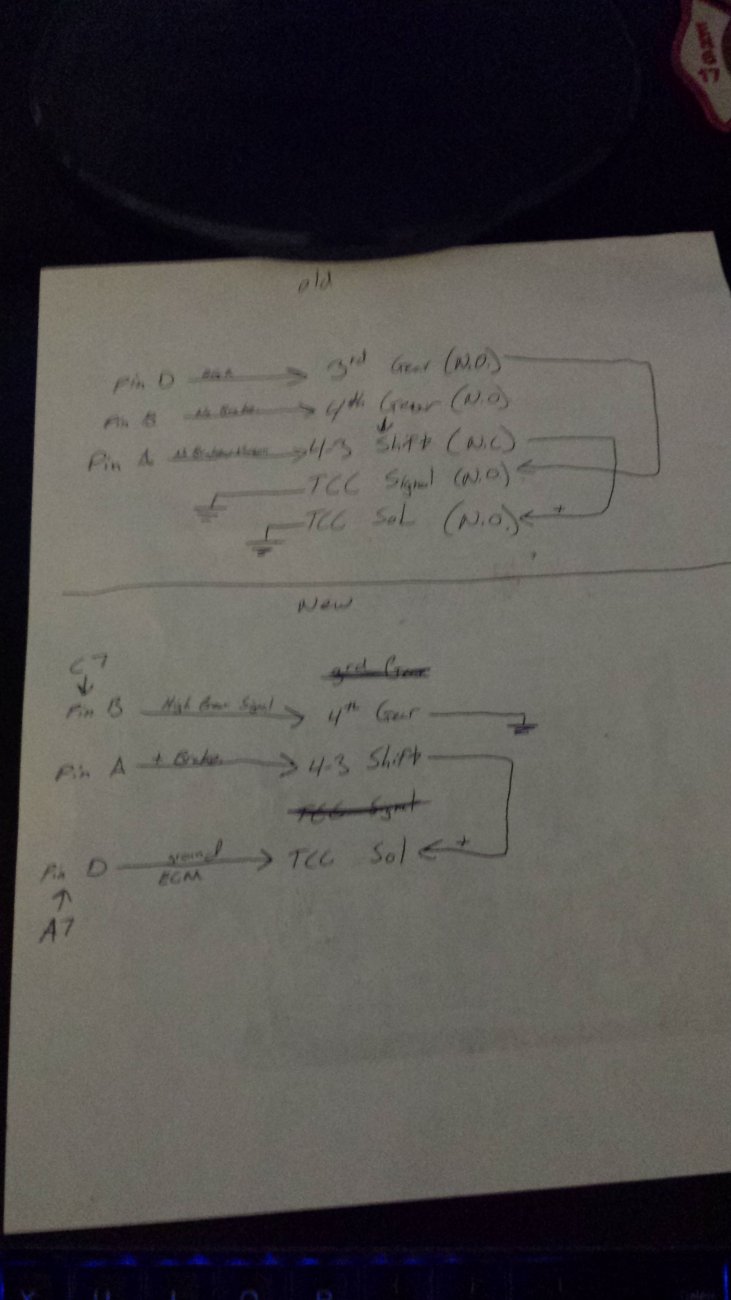 old
Pin D 3rd Gear (N.O.)
Pin B No Brake 4th Gear (N.O)
Pin A 4-3 Shift (N.C)
TCC Signal (N.O)
TCC Sol (N.O.) +
New
C7
3rd Gear
Pin B High Gear Signal 4th Gear
Pin A + Brake 4-3 Shift
TCC Signal
Pin D ground TCC Sol +
ECM
A7